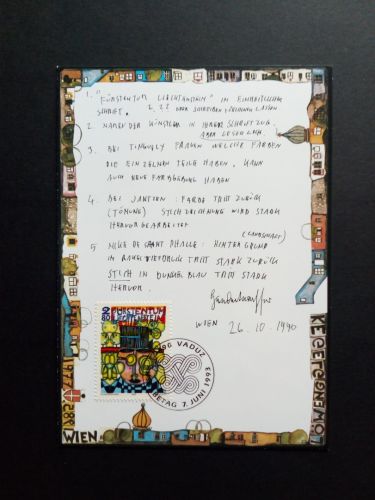 1. "FÜRSTENTUM LIECHTENSTEIN" IN EINHEITLICHER
SCHRIFT. Z.B. ODER SCHREIBEN LASSEN
2. NAMEN DER KÜNSTLER IN IHREM SCHRIFTZUG.
ABER LESERLICH.
3. BEI TINGUELY FRAGEN WELCHE FARBEN
DIE EINZELNEN TEILE HABEN. KANN
AUCH NEUE FARBGEBUNG HABEN
4. BEI JANSSEN: FARBE TRITT ZURÜCK
(TÖNUNG) STICH ZEICHNUNG WIRD STARK
HERVORGEARBEITET
(LANDSCHAFT)
5 NIKI DE SAINT PHALLE: HINTERGRUND
TRITT STARK ZURÜCK
STICH IN DUNKELBLAU TRITT STARK
HERVOR.
WIEN 26.10.1990
FÜRSTENTUM
LIECHTENSTEIN
9490 VADUZ
7. JUNI 1993
1977/782
WIEN
KEGEGENSEMO